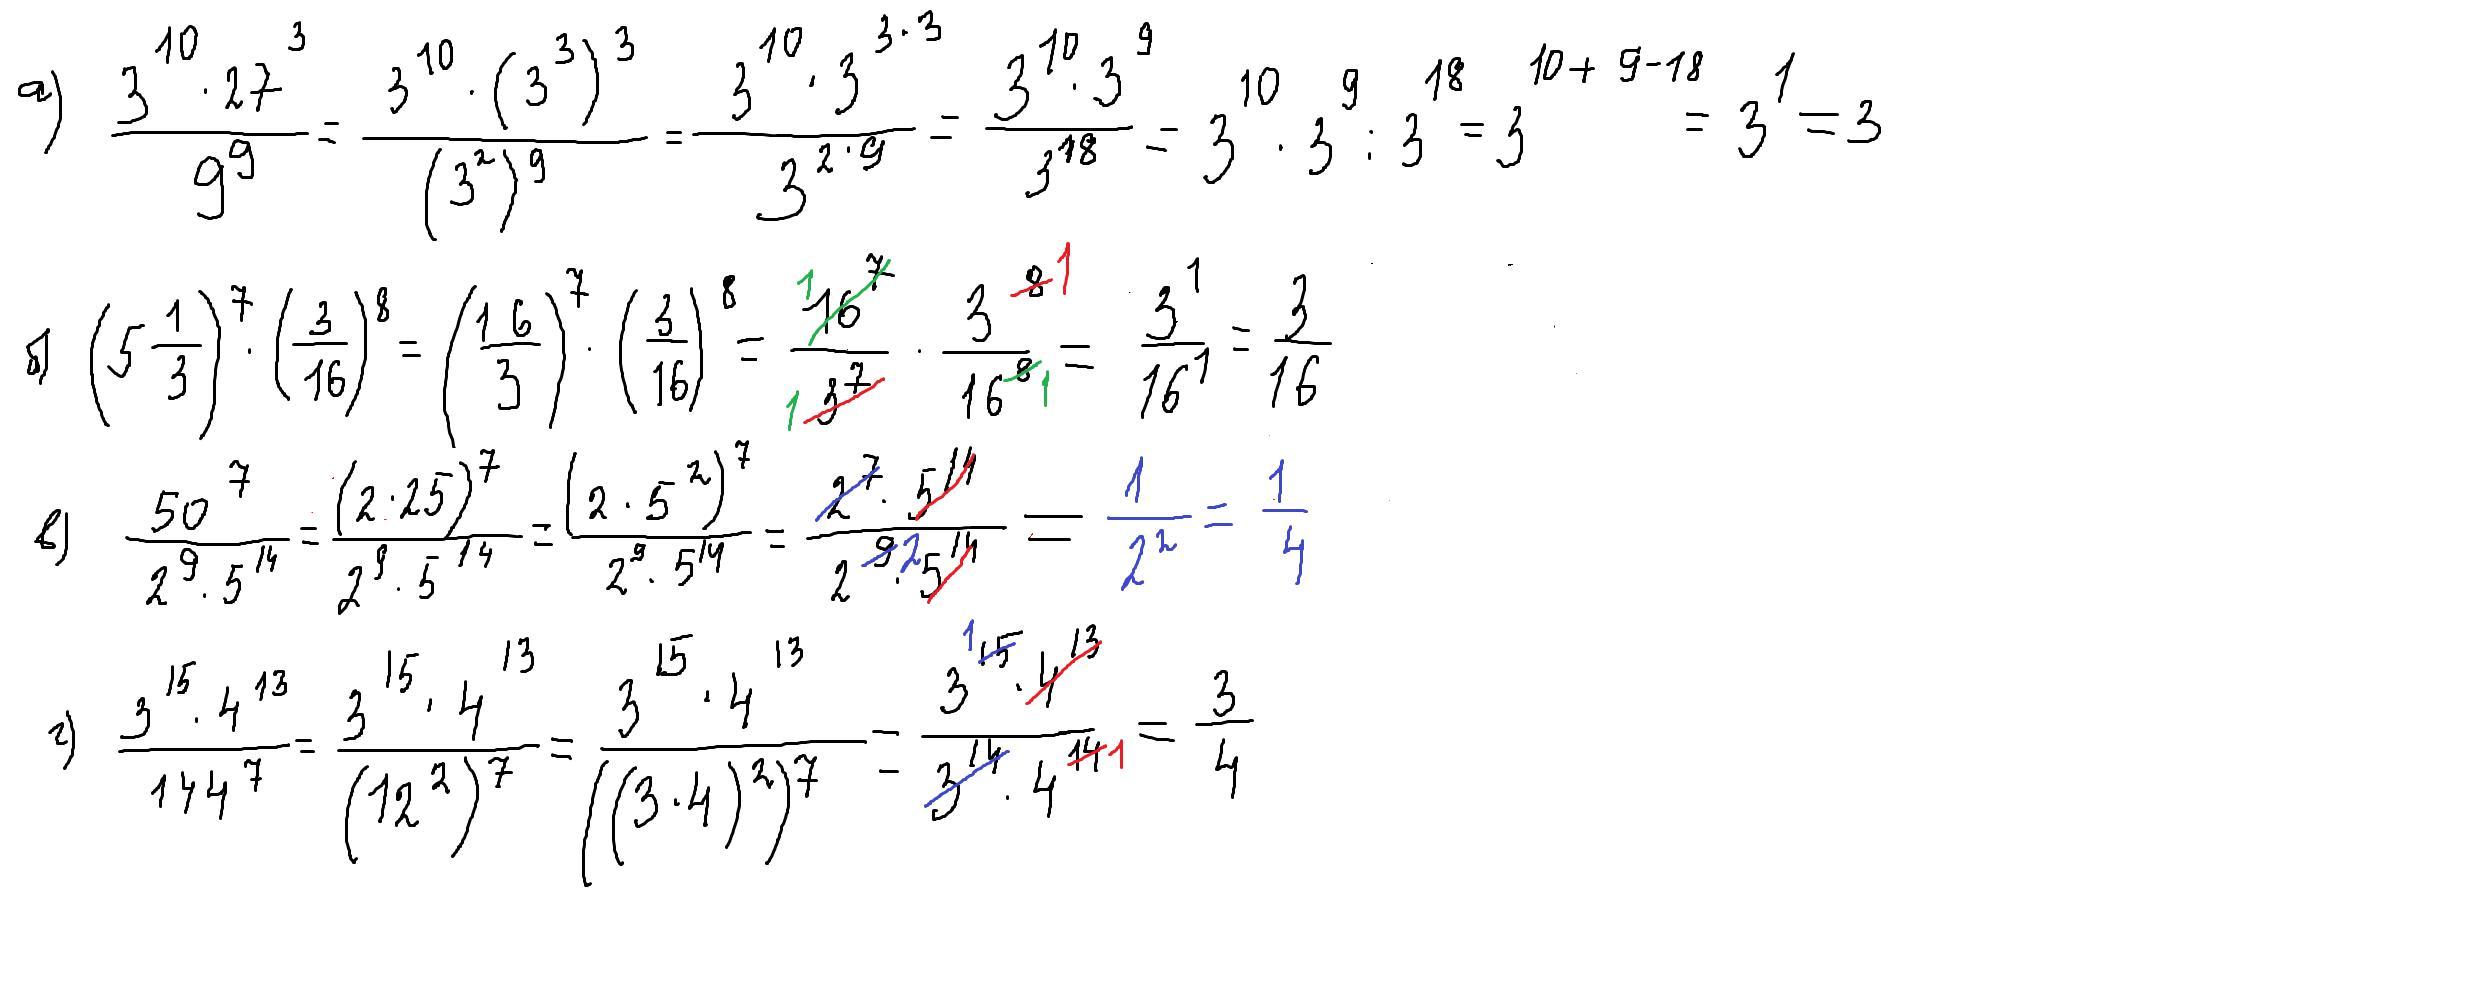 а) \frac{3^{10} \cdot 27^3}{9^9} = \frac{3^{10} \cdot (3^3)^3}{(3^2)^9} = \frac{3^{10} \cdot 3^{3 \cdot 3}}{3^{2 \cdot 9}} = \frac{3^{10} \cdot 3^9}{3^{18}} = 3^{10} \cdot 3^9 : 3^{18} = 3^{10+9-18} = 3^1 = 3
б) (5\frac{1}{3})^7 \cdot (\frac{3}{16})^8 = (\frac{16}{3})^7 \cdot (\frac{3}{16})^8 = \frac{^1\cancel{16^7}}{^1\cancel{3^7}} \cdot \frac{3^{\cancel{8} 1}}{16^{\cancel{8} 1}} = \frac{3^1}{16^1} = \frac{3}{16}
в) \frac{50^7}{2^9 \cdot 5^{14}} = \frac{(2 \cdot 25)^7}{2^9 \cdot 5^{14}} = \frac{(2 \cdot 5^2)^7}{2^9 \cdot 5^{14}} = \frac{\cancel{2^7} \cdot \cancel{5^{14}}}{2^{\cancel{9} 2} \cdot \cancel{5^{14}}} = \frac{1}{2^2} = \frac{1}{4}
г) \frac{3^{15} \cdot 4^{13}}{144^7} = \frac{3^{15} \cdot 4^{13}}{(12^2)^7} = \frac{3^{15} \cdot 4^{13}}{((3 \cdot 4)^2)^7} = \frac{3^{1 \cancel{15}} \cdot \cancel{4^{13}}}{\cancel{3^{14}} \cdot 4^{\cancel{14} 1}} = \frac{3}{4}